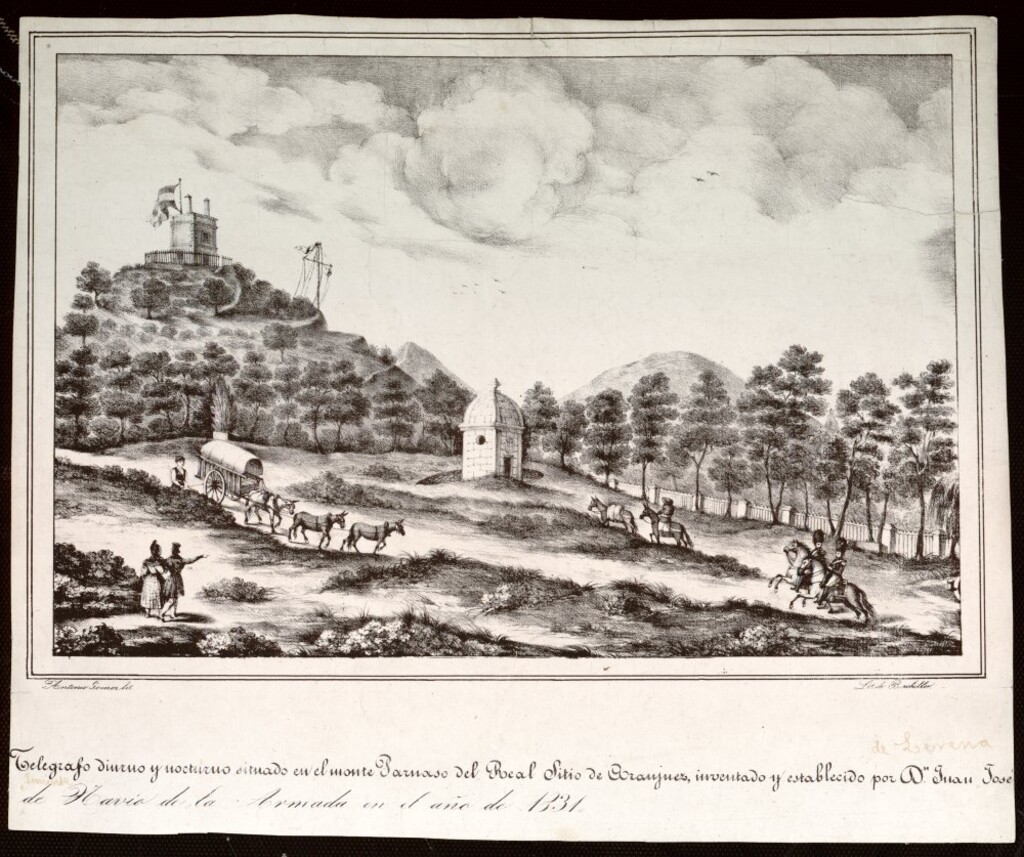 Antonio Gomez lit.
Lit. de Bachiller
de Lerena
Telegrafo diurno y nocturno situado en el monte Parnaso del Real Sitio de Aranjuez, inventado y establecido por D.ⁿ Juan José
Teniente
de Navio de la Armada en el año de 1831.